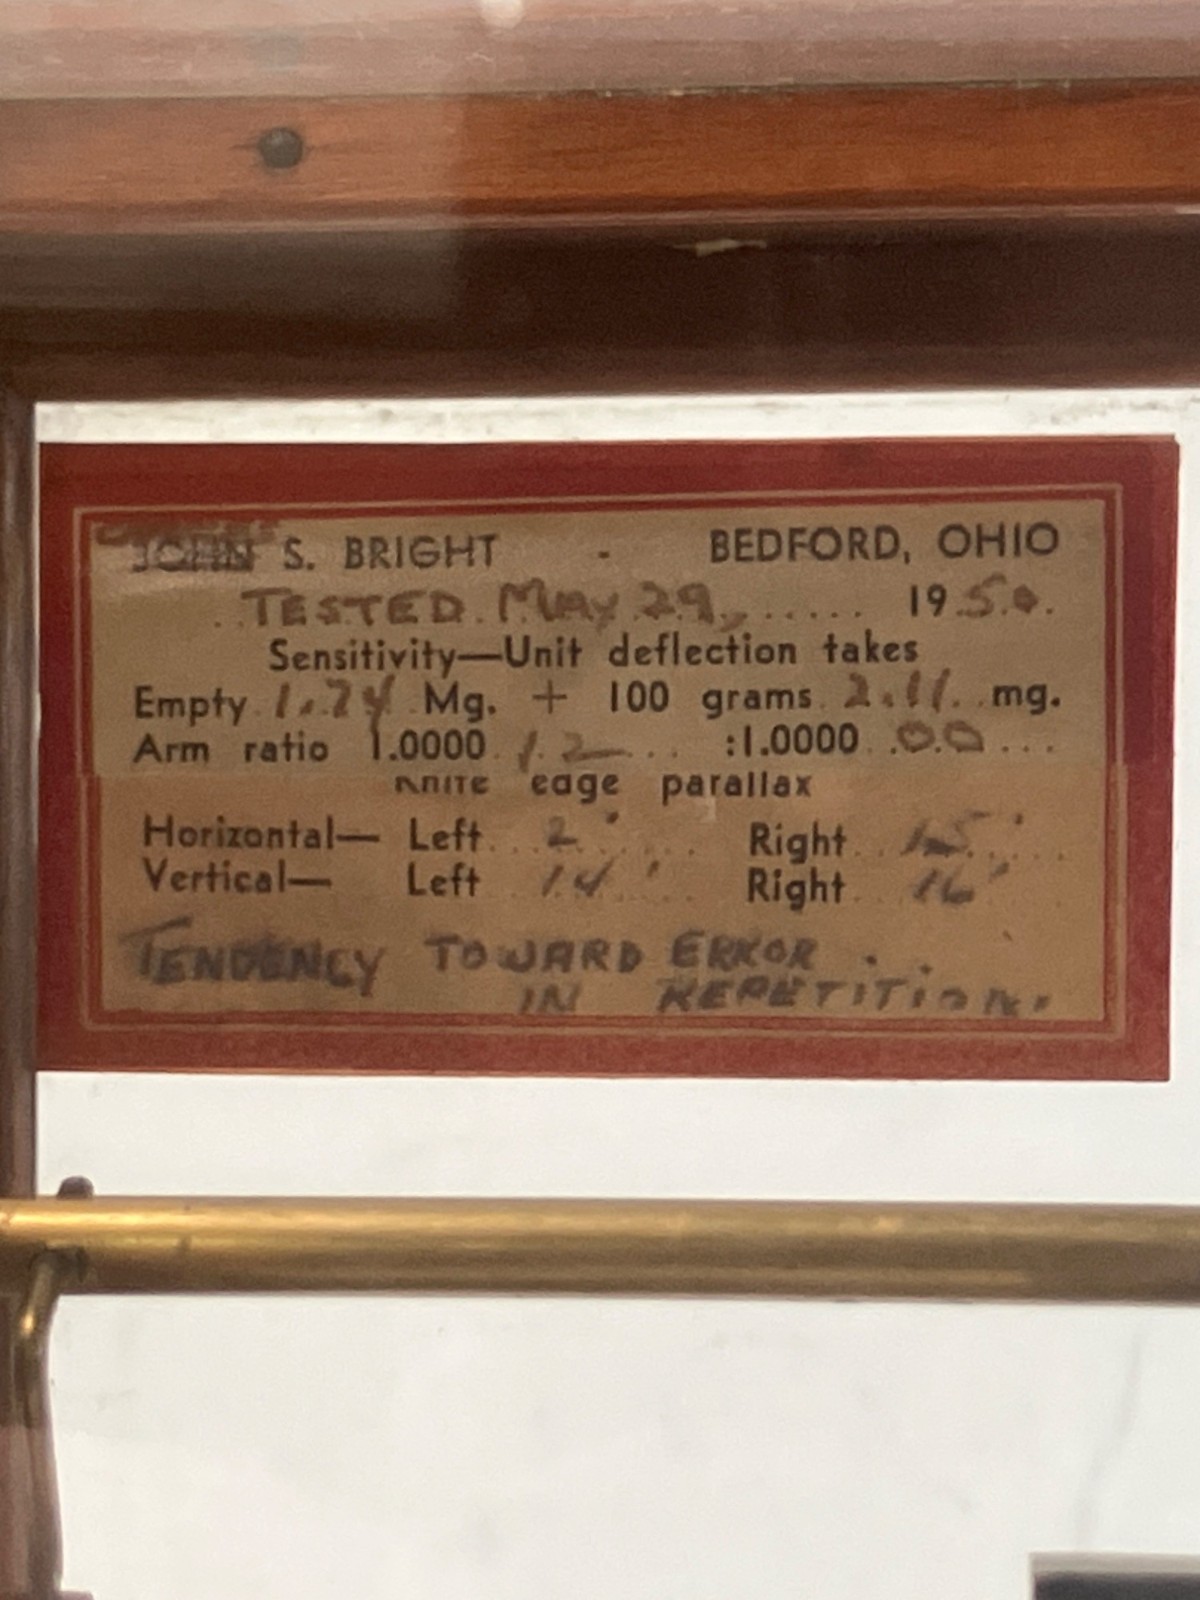 JOHN S. BRIGHT - BEDFORD, OHIO
TESTED May 29, ...... 1950.
Sensitivity—Unit deflection takes
Empty 1.74 Mg. + 100 grams 2.11 mg.
Arm ratio 1.0000 12 ... :1.0000 .00...
Knife edge parallax
Horizontal— Left 2' Right 15'
Vertical— Left 14' Right 16'
TENDENCY TOWARD ERROR
IN REPETITION.